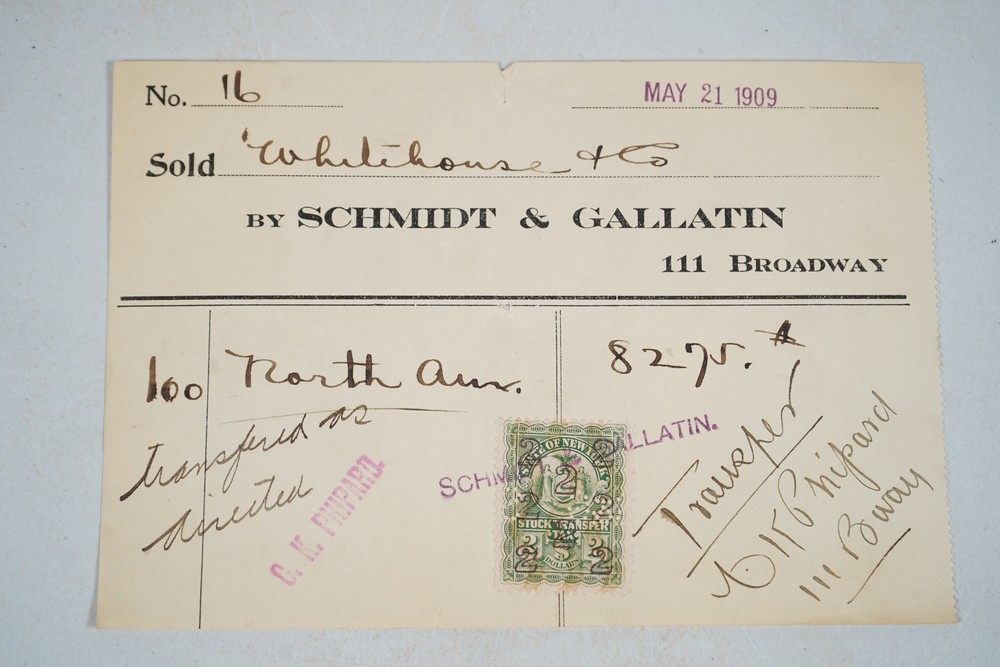 No. 16
MAY 21 1909
Sold Whitehouse & Co
BY SCHMIDT & GALLATIN
111 BROADWAY
100 North Am. 8275.
transferred as
directed
C. K. PHIPARD.
SCHMIDT & GALLATIN.
STATE OF NEW YORK
2 2
2
2 2
STOCK TRANSFER
2 2 2
DOLLARS
Transfer
C K Phipard
111 Bway